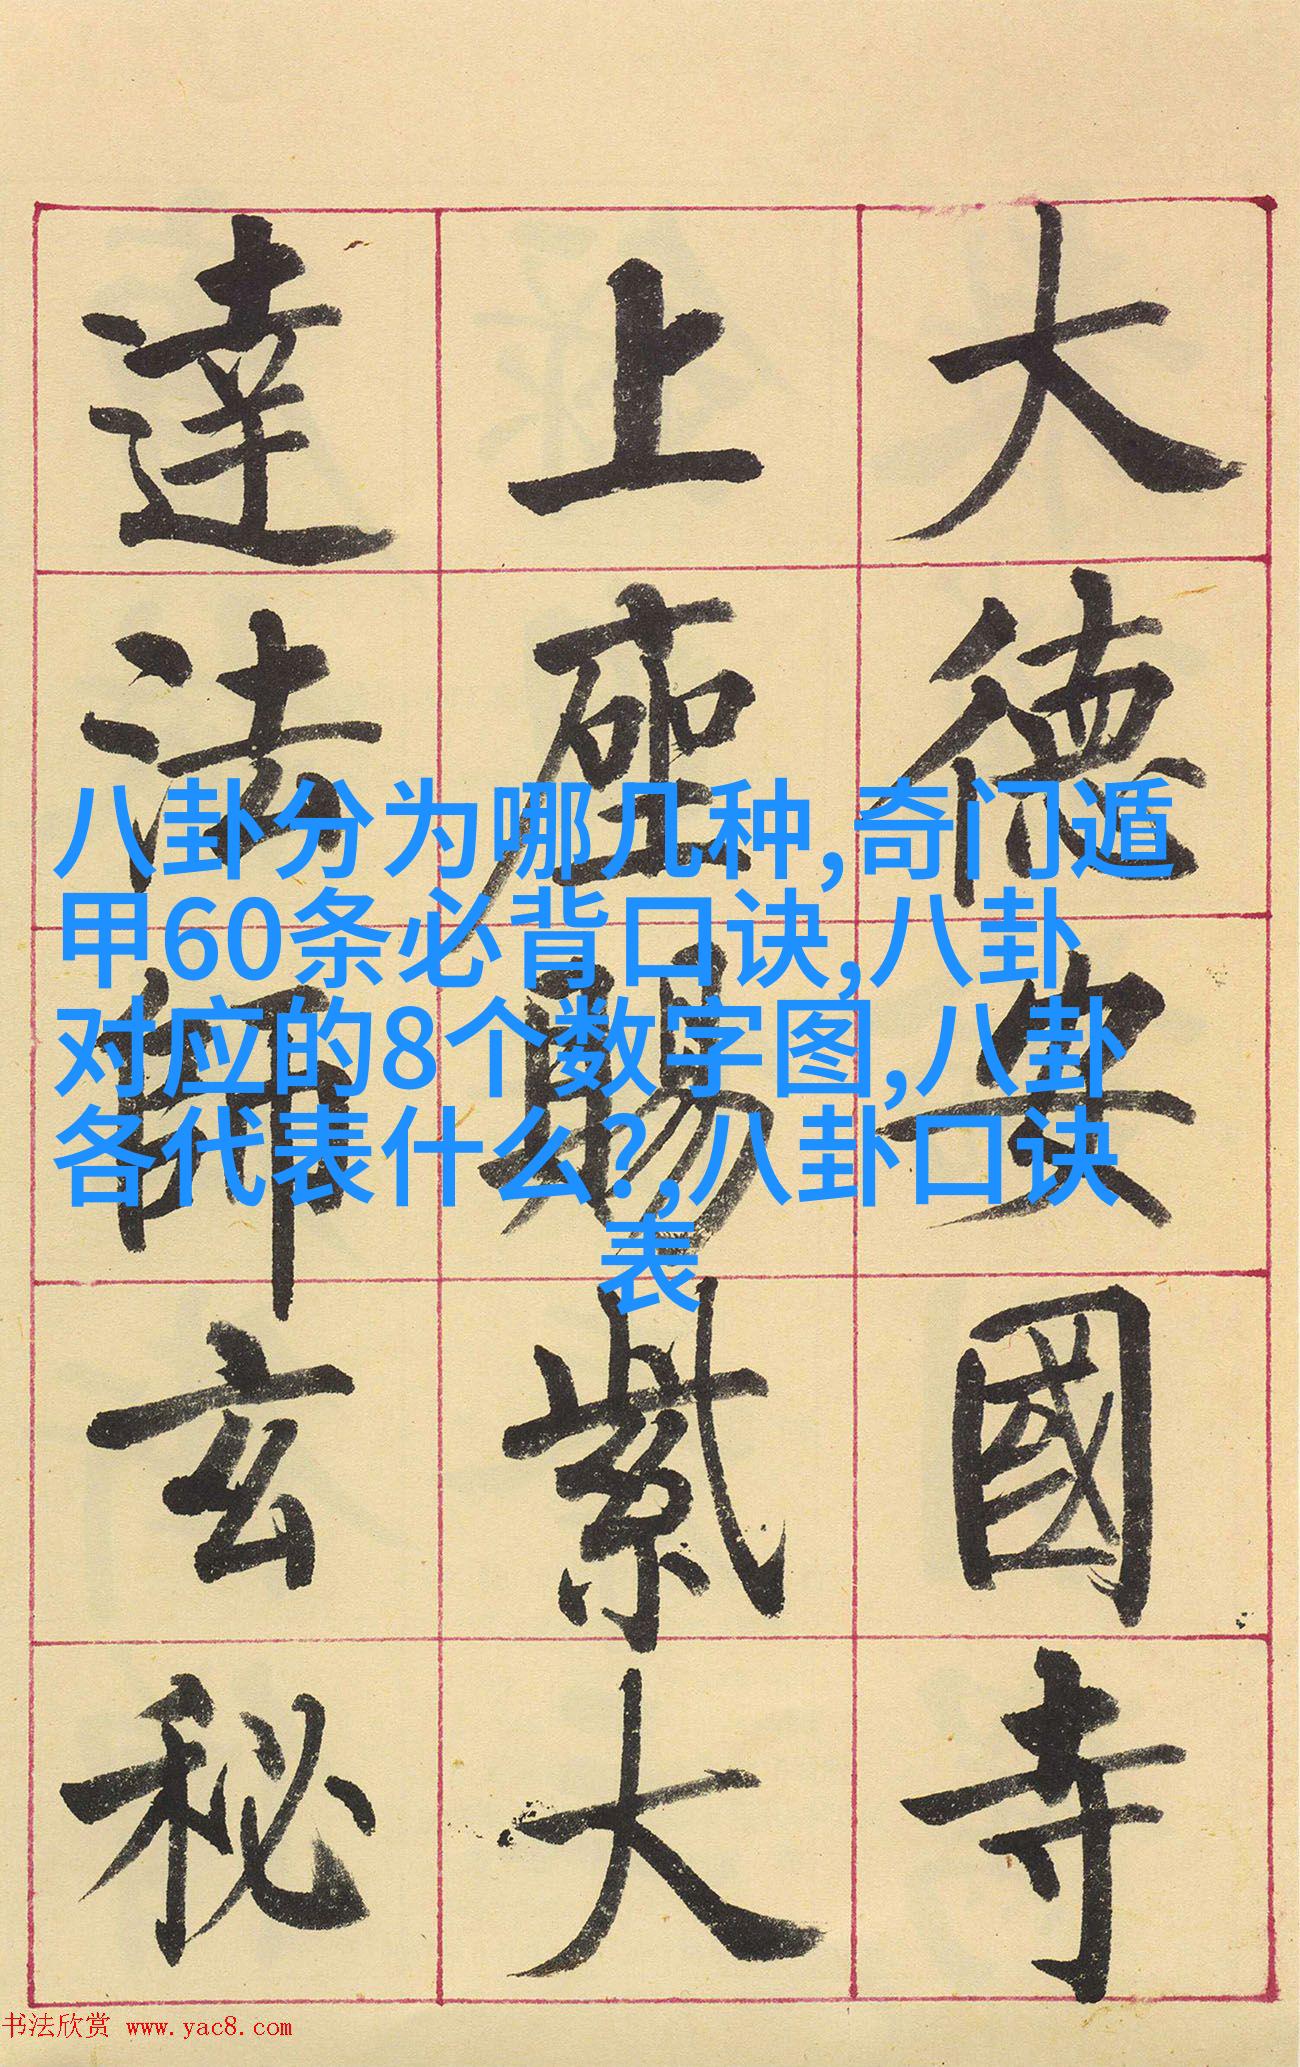 大德安國寺
上座賜紫大
達法師玄秘
八卦分为哪几种,奇门遁
甲60条必背口诀,八卦
对应的8个数字图,八卦
各代表什么?,八卦口诀
表
书法欣赏 www.yac8.com